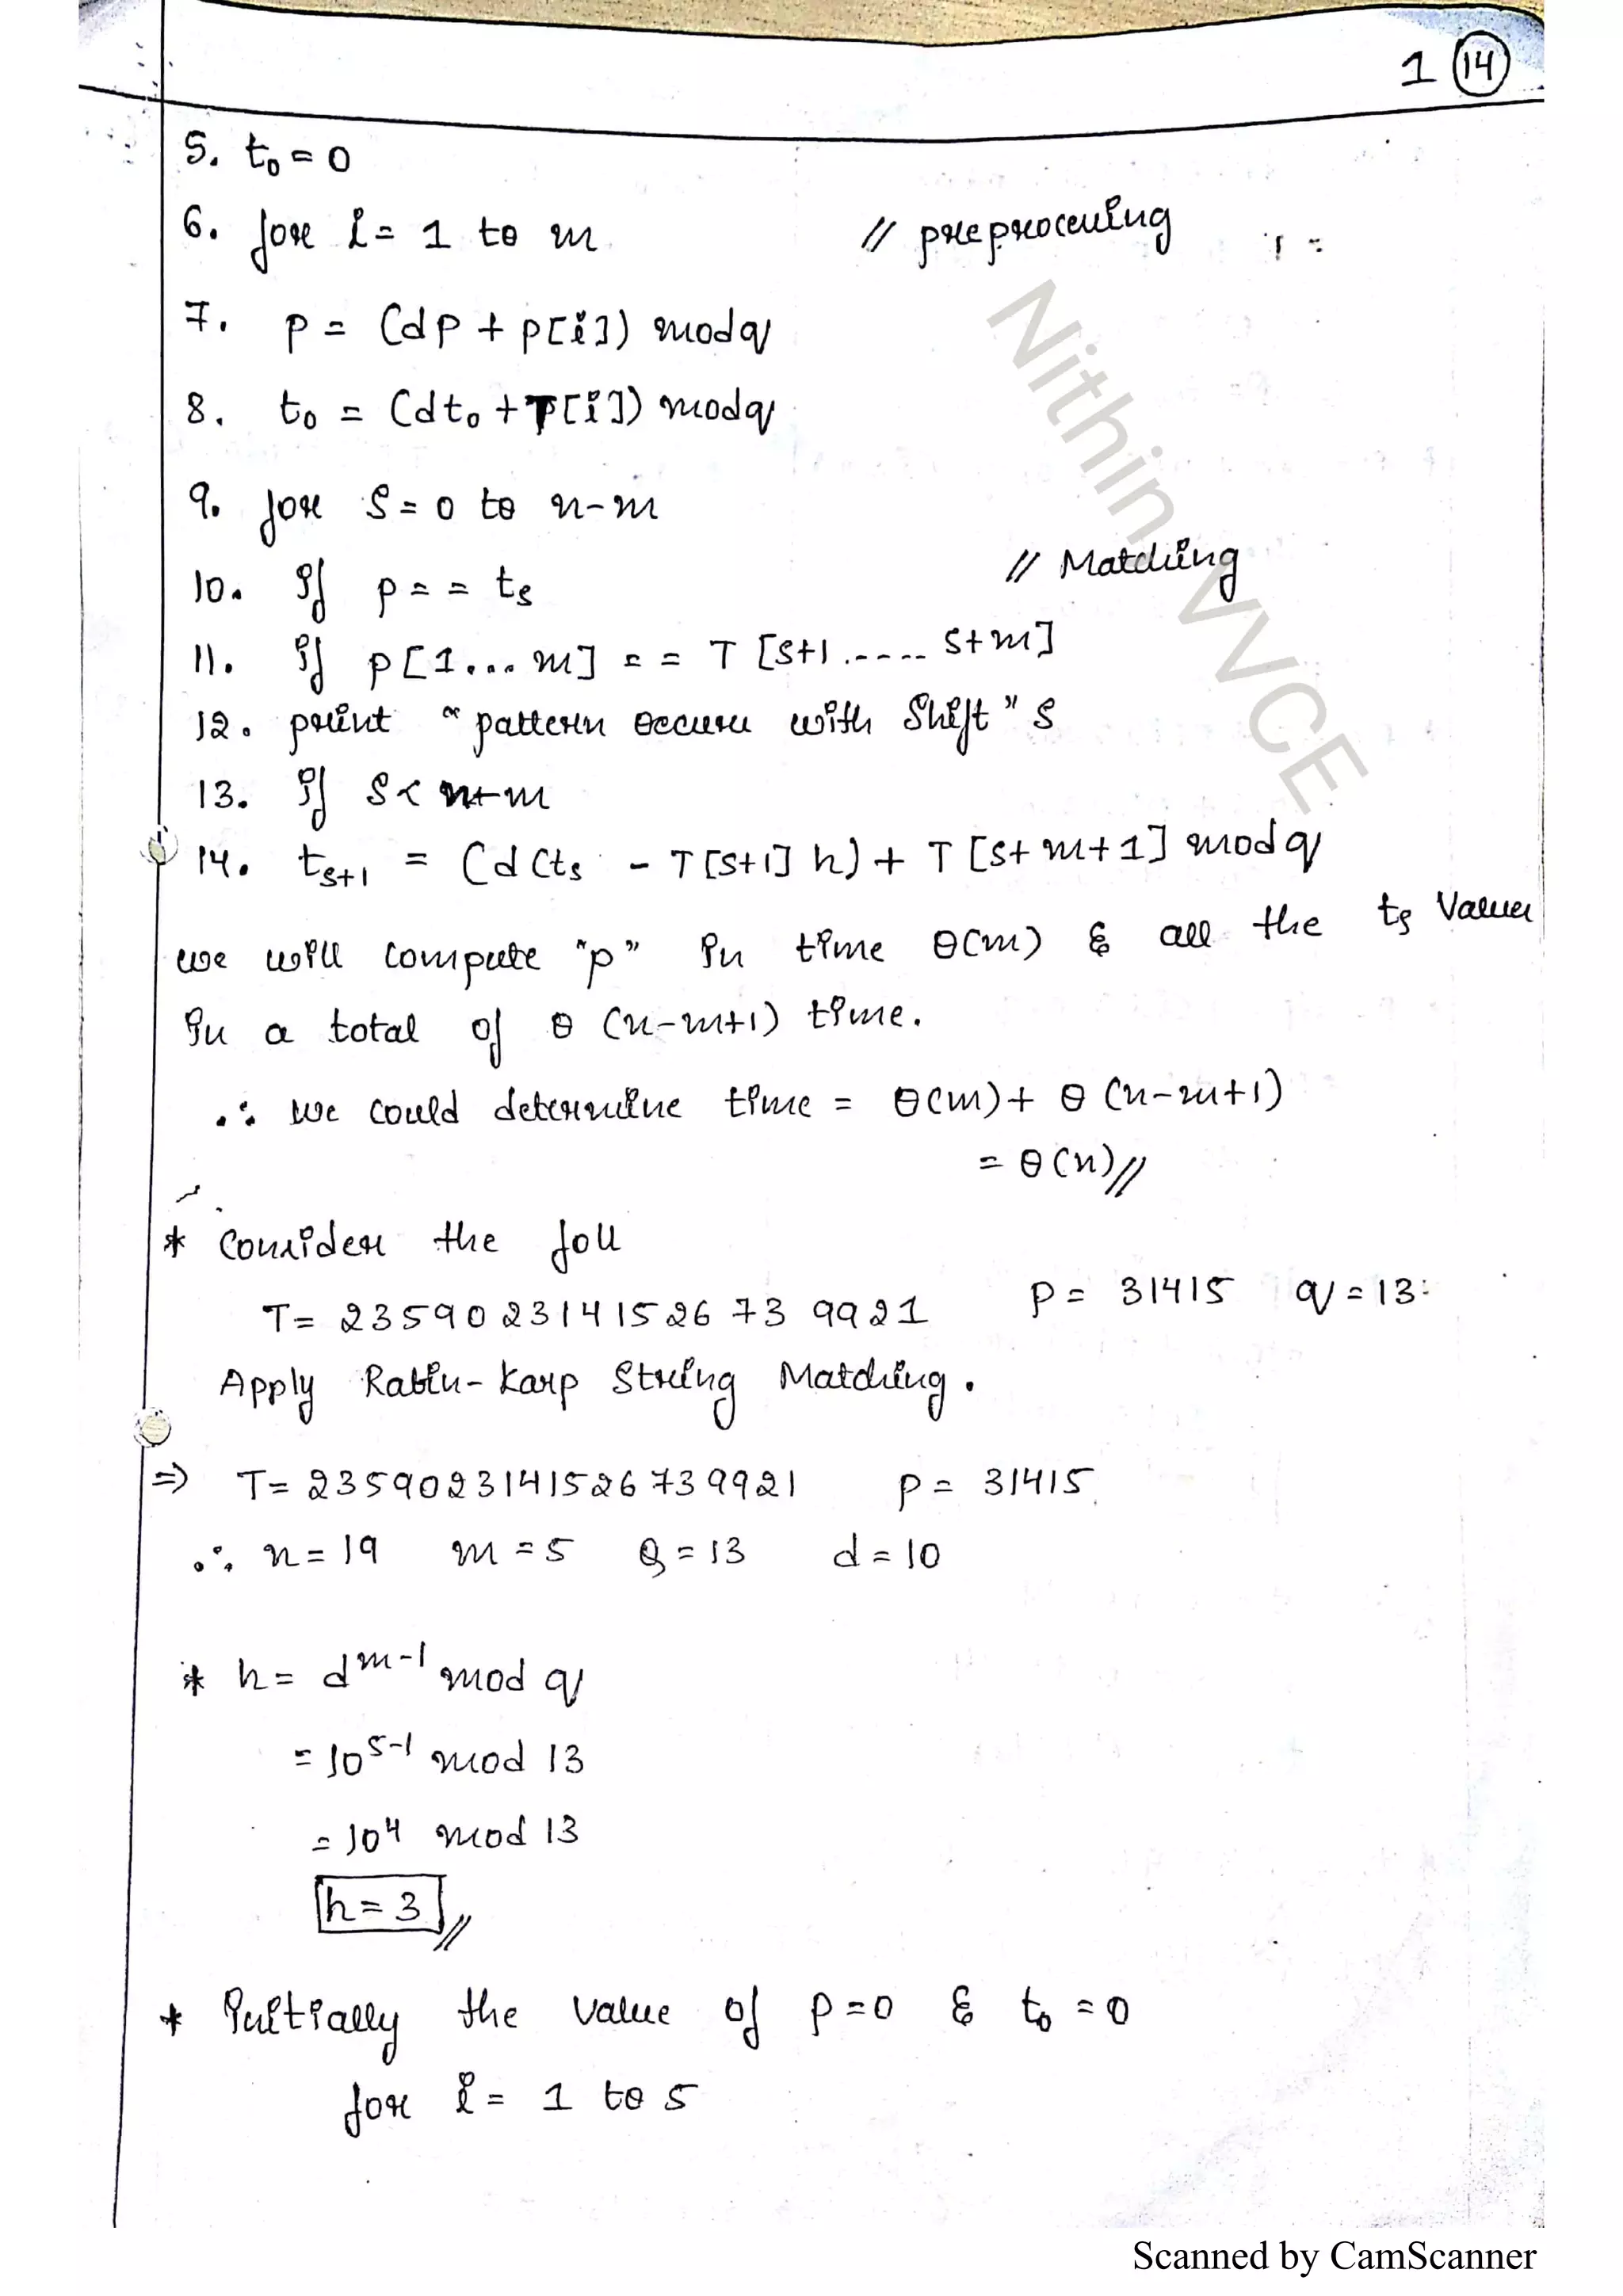 1 (14)
5. t₀ = 0
6. for i = 1 to m // preprocessing
7. p = (dp + p[i]) mod q
8. t₀ = (dt₀ + T[i]) mod q
9. for S = 0 to n-m
10. if p = = ts // Matching
11. if p[1...m] = = T [s+1 ..... s+m]
12. print "pattern occurs with shift" s
13. if S <
14. ts+1 = (d(ts - T[s+1] h) + T [s+m+1] mod q
we will compute "p" in time θ(m) & all the ts values
in a total of θ (n-m+1) time.
∴ we could determine time = θ(m) + θ (n-m+1)
= θ(n)//
* Consider the foll
T= 2359023141526739921 P= 31415 q=13
Apply Rabin-Karp String Matching.
⇒ T= 2359023141526739921 P= 31415
∴ n=19 m=5 Q=13 d=10
* h= d^m-1 mod q
= 10^5-1 mod 13
= 10^4 mod 13
h=3 //
* Initially the value of p=0 & t₀=0
for i= 1 to 5
Nithin VVCE
Scanned by CamScanner